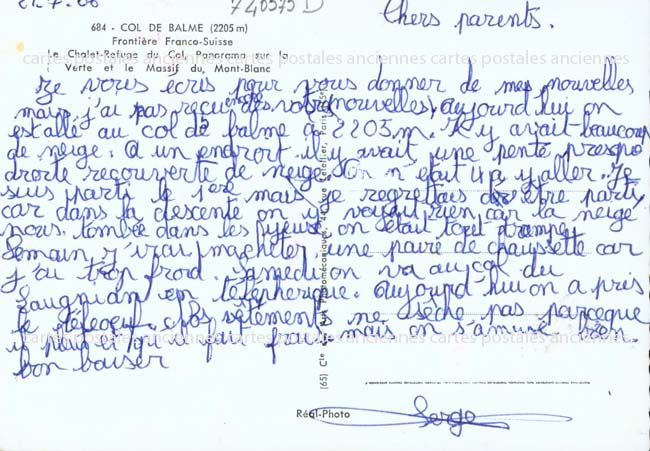 21.7.66
740575 D
Chers parents.
684 - COL DE BALME (2205 m)
Frontière Franco-Suisse
Le Chalet-Refuge du Col Panorama sur la
Verte et le Massif du Mont-Blanc
cartes postales anciennes cartes postales anciennes cartes postales anciennes
Je vous écris pour vous donner de mes nouvelles
mais j'ai pas reçue encore de votre nouvelles, aujourd'hui on
est allé au col de balme a 2205.m. Il y avait beaucoup
de neige. a un endroit il y avait une pente presque
droite recouverte de neige. On n'était 4 a y aller. Je
suis parti le 1ere mais je regrettais d'être parti
car dans la descente on y voyait rien car la neige
nous tombée dans les yieuse on était tout trampe
Semain j'irai m'acheter une paire de chaussette car
j'ai trop froid. Samedi on va au col du
en téléphérique. aujourd'hui on a pris
le vêtement ne sèche pas parceque
il pleut et il fait frais mais on s'amuse bien.
bon baiser
Serge
Réél-Photo
(65) Cie